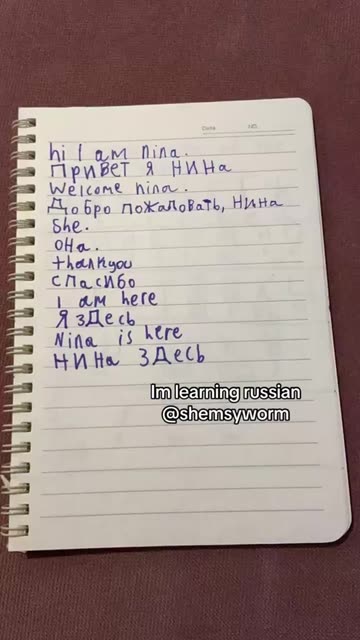 Date
NO.
hi I am nina.
Привет я нина
Welcome nina.
Добро пожаловать, нина
She.
она.
thankyou
спасибо
I am here
я здесь
Nina is here
нина здесь
Im learning russian
@shemsyworm